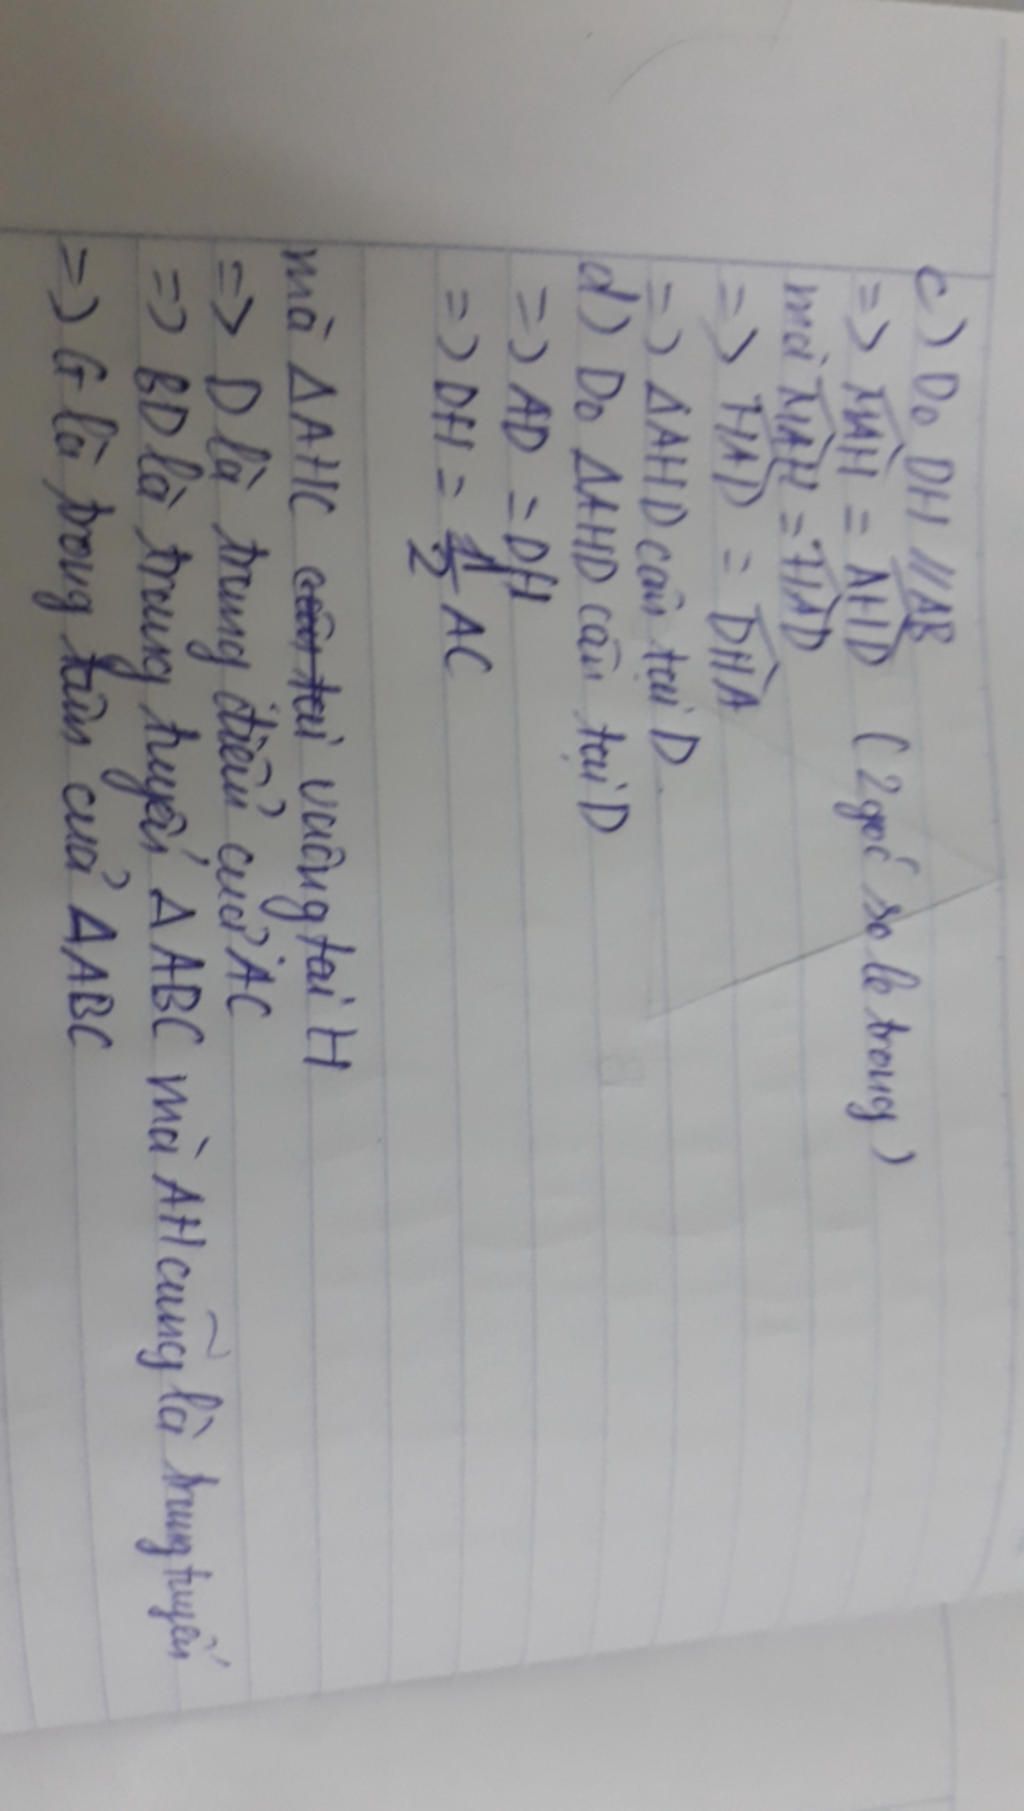 c) Do DH // AB
=> MAH = AHD (2 góc so le trong)
mà MAH = HAD
=> HAD = DHA
=> ΔAHD cân tại D
d) Do ΔAHD cân tại D
=> AD = DH
=> DH = 1/2 AC
mà ΔAHC cân tại vuông tại H
=> D là trung điểm của AC
=> BD là trung tuyến ΔABC mà AH cũng là trung tuyến
=> G là trong tâm của ΔABC